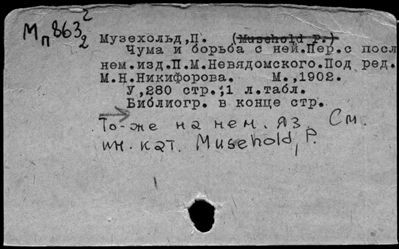 Мп 863 2/2
Музехольд,П. (Musehold P.)
Чума и борьба с ней.Пер.с посл
нем.изд.П.М.Невядомского.Под ред.
М.Н.Никифорова. М.,1902.
У,280 стр.;1 л.табл.
Библиогр. в конце стр.
То-же на нем. яз. См.
ин. кат. Musehold, P.